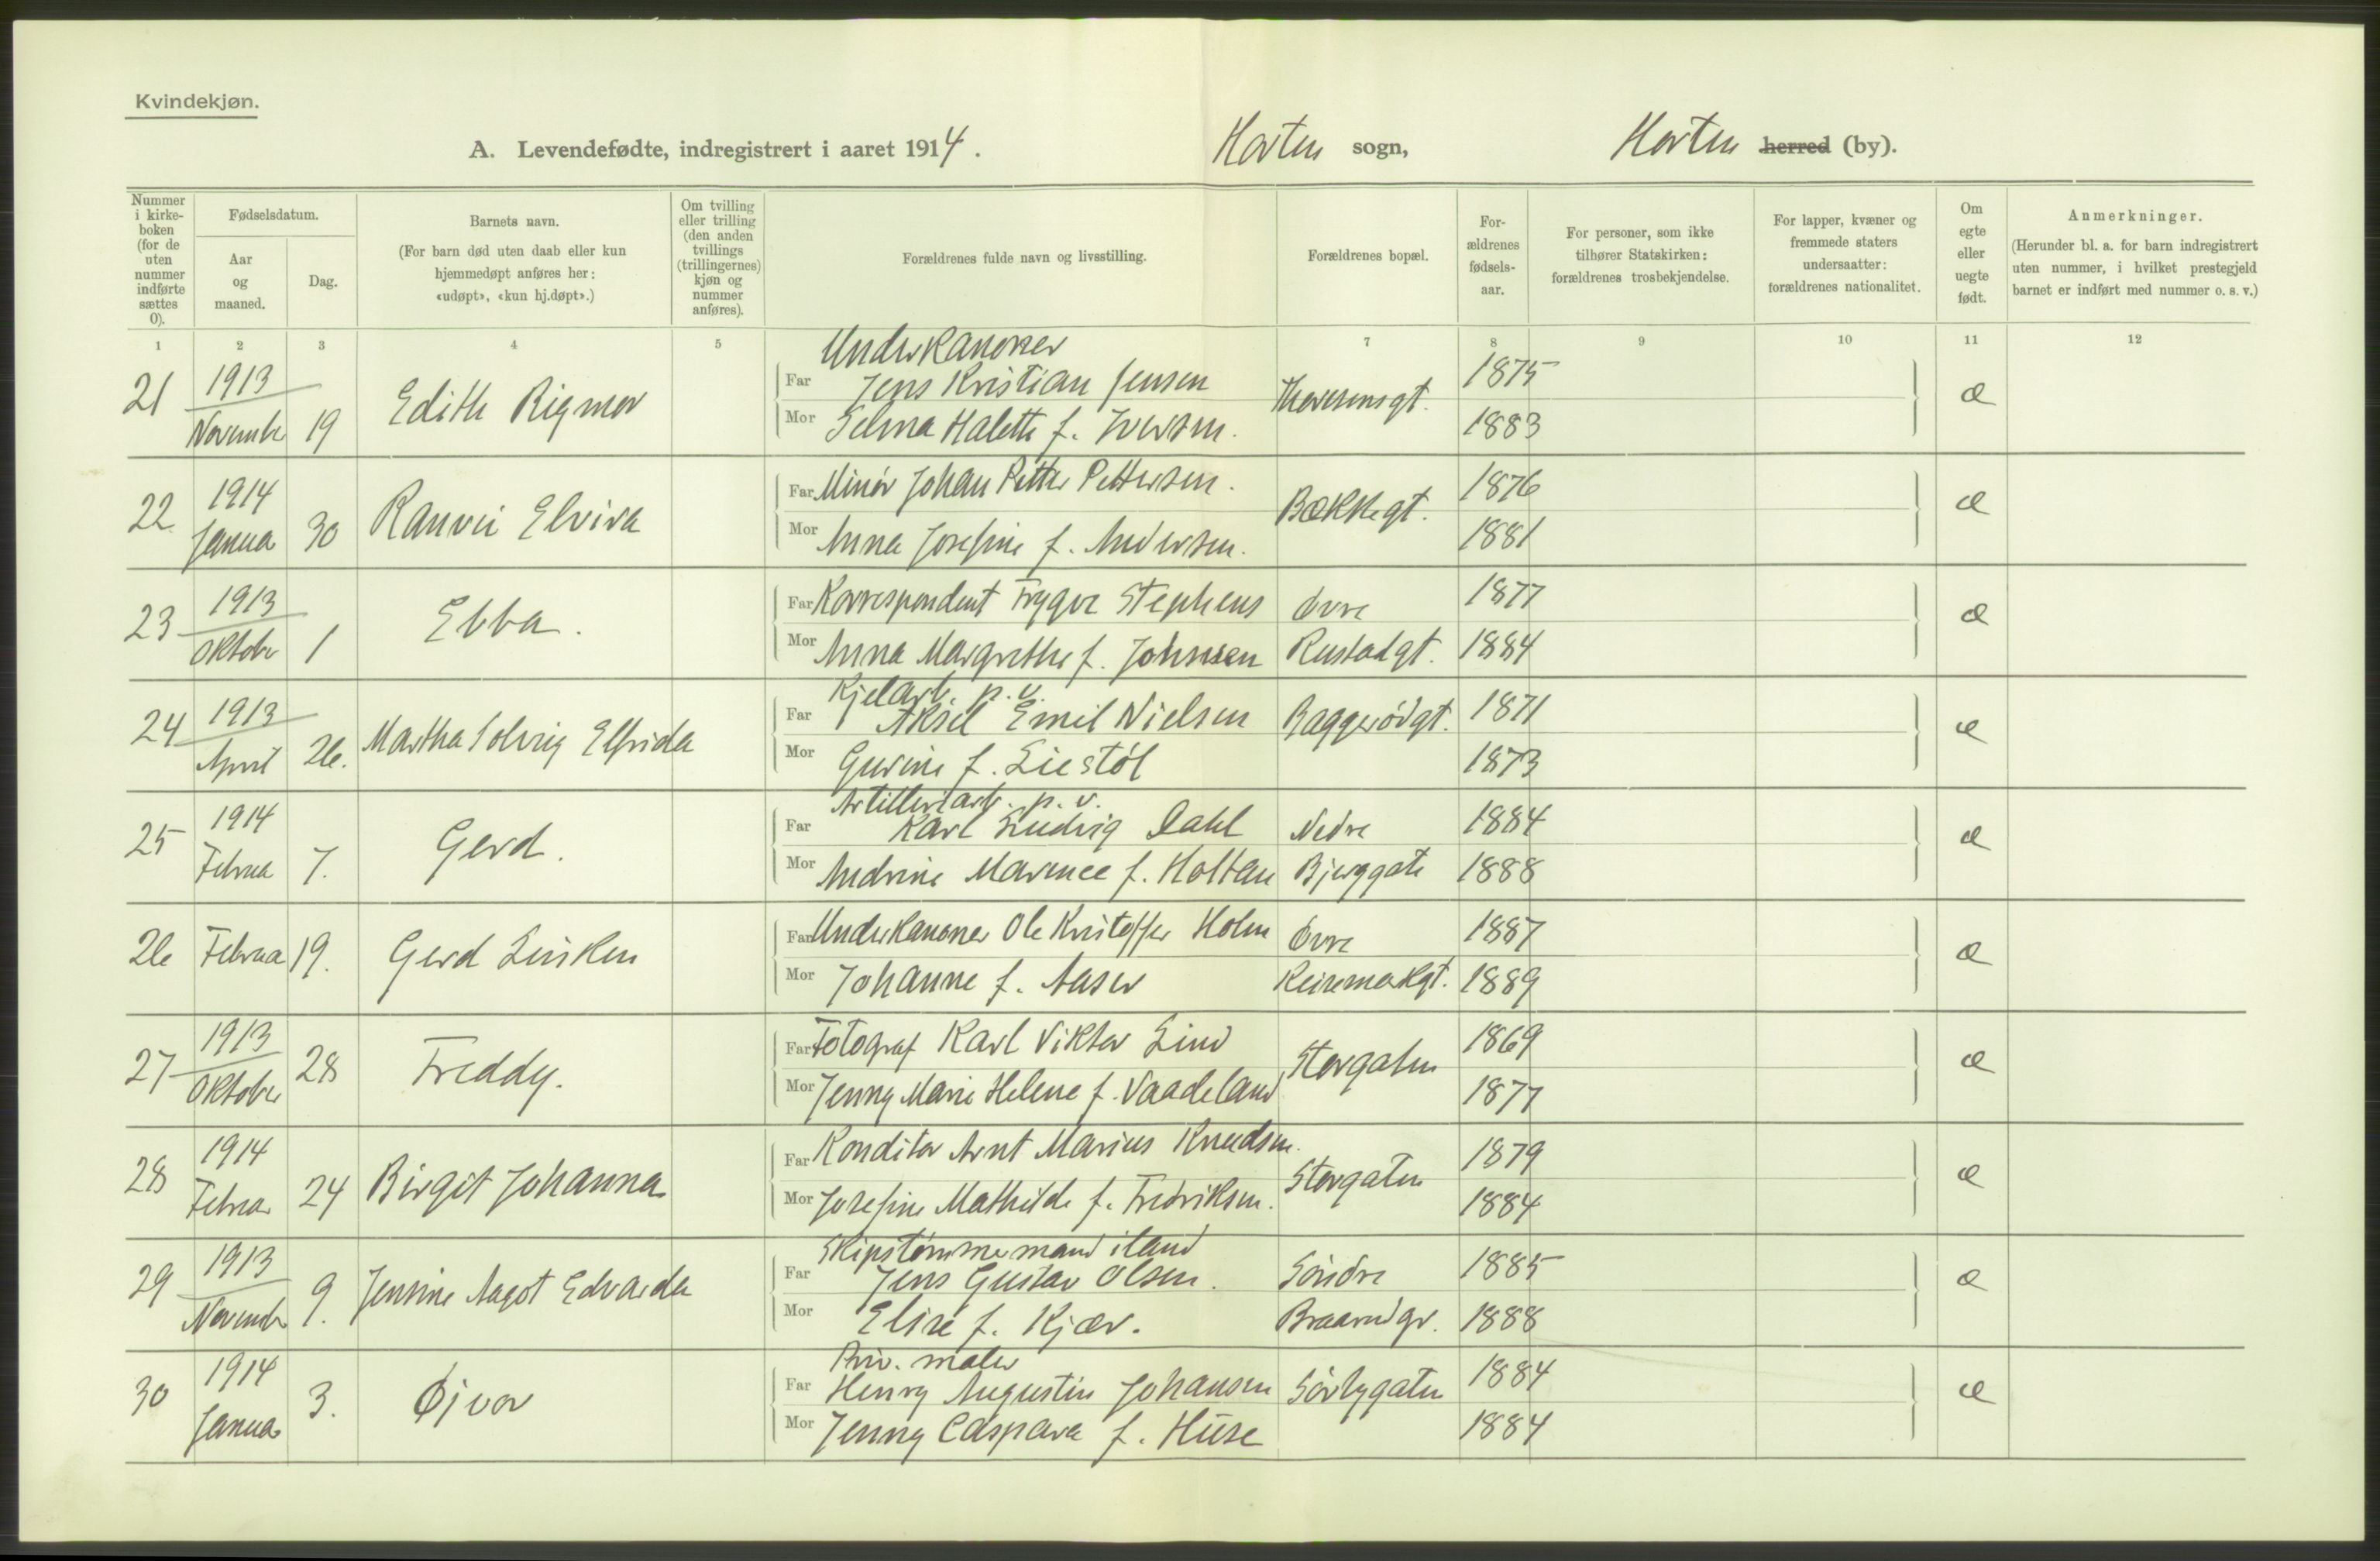 Kvindekjøn.
A. Levendefødte, indregistrert i aaret 1914.
Horten sogn,
Horten herred (by).
Nummer i kirkeboken (for de uten nummer indførte sættes 0).
Fødselsdatum.
Aar og maaned.
Dag.
Barnets navn.
(For barn død uten daab eller kun hjemmedøpt anføres her: «udøpt», «kun hj.døpt».)
Om tvilling eller trilling (den anden tvillings (trillingernes) kjøn og nummer anføres).
Forældrenes fulde navn og livsstilling.
Forældrenes bopæl.
For-ældrenes fødsels-aar.
For personer, som ikke tilhører Statskirken: forældrenes trosbekjendelse.
For lapper, kvæner og fremmede staters undersaatter: forældrenes nationalitet.
Om egte eller uegte født.
Anmerkninger.
(Herunder bl. a. for barn indregistrert uten nummer, i hvilket prestegjeld barnet er indført med nummer o. s. v.)
1 2 3 4 5 7 8 9 10 11 12
21 1913 Novembr 19 Edith Rigmor
Underkanoner
Far Jens Kristian Jensen Theresensgt. 1875 æ
Mor Selma Halette f. Iversen. 1883
22 1914 Janua 30 Ranvei Elvira
Far Minør Johan Petter Pettersen. Bækkegt. 1876 æ
Mor Anna Josefine f. Andersen. 1881
23 1913 Oktober 1 Ebba.
Far Korrespondent Trygve Stephens Øvre 1877 æ
Mor Anna Margrethe f. Johnsen Rustadgt. 1884
24 1913 April 26. Martha Solveig Elfrida
Kjelarb. p. v.
Far Aksel Emil Nielsen Baggerødgt. 1871 æ
Mor Gurine f. Liestøl 1873
25 1914 Februa 7. Gerd.
Artilleriarb. p. v.
Far Karl Ludvig Dahl Nedre 1884 æ
Mor Andrine Marence f. Holtan Bjerggate 1888
26 Februa 19. Gerd Linken
Far Underkanoner Ole Kristoffer Holm Øvre 1887 æ
Mor Johanne f. Aaser Keisemarkgt. 1889
27 1913 Oktober 28 Freddy.
Far Fotograf Karl Viktor Lind Storgaten 1869 æ
Mor Jenny Marie Helene f. Vaadeland 1877
28 1914 Februa 24 Birgit Johanna
Far Konditor Arnt Marius Knudsen. Storgaten 1879 æ
Mor Josefine Mathilde f. Fredriksen. 1884
29 1913 Novembr 9. Jensine Aagot Edvarda
Skipstømmermand iland
Far Jens Gustav Olsen. Søndre 1885 æ
Mor Elise f. Kjær. Braarudgt. 1888
30 1914 Janua 3. Øivor
Priv. maler
Far Henry Augustin Johansen Sørbygaten 1884 æ
Mor Jenny Caspara f. Huse 1884